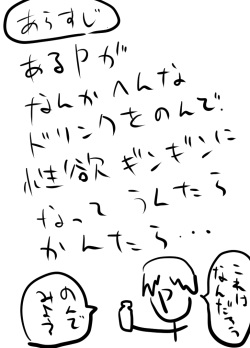 あらすじ
あるPが
なんかへんな
ドリンクをのんで
性欲ギンギンに
なってうんたら
かんたら・・・
これは
なんだろう
P
のんで
みよう